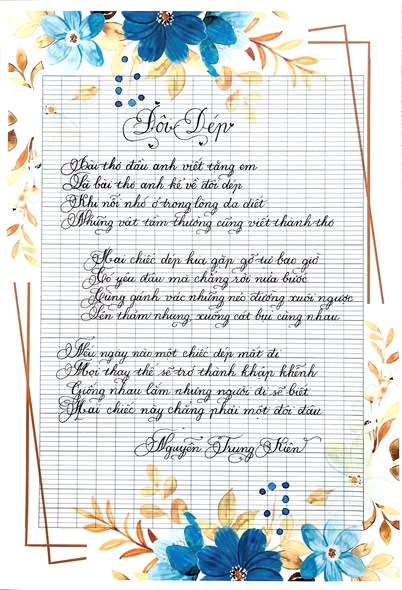 Đôi Dép
Bài thơ đầu anh viết tặng em
Là bài thơ anh kể về đôi dép
Khi nỗi nhớ ở trong lòng da diết
Những vật tầm thường cũng viết thành thơ
Hai chiếc dép kia gặp gỡ tự bao giờ
Có yêu đâu mà chẳng rời nửa bước
Cùng gánh vác những nẻo đường xuôi ngược
Lên thảm nhung, xuống cát bụi cùng nhau
Nếu ngày nào một chiếc dép mất đi
Mọi thay thế sẽ trở thành khập khễnh
Giống nhau lắm nhưng người đi sẽ biết
Hai chiếc này chẳng phải một đôi đâu
Nguyễn Trung Kiên